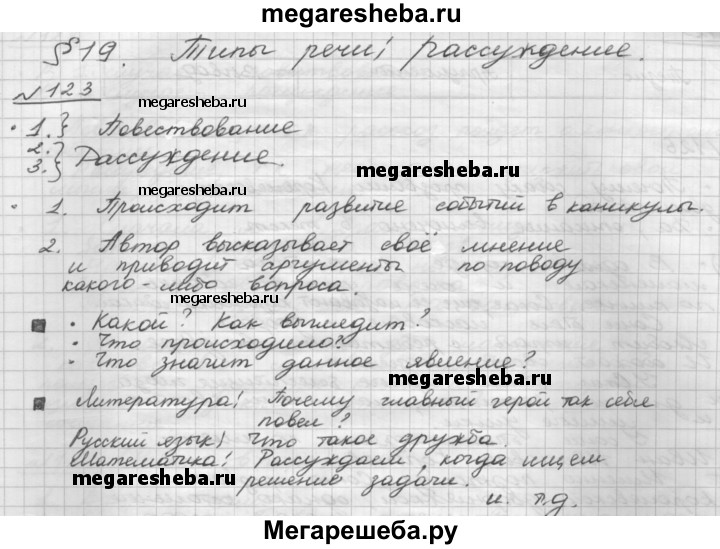 megaresheba.ru
§19. Типы речи: рассуждение.
№123
megaresheba.ru
• 1.} Повествование
2.}
3.} Рассуждение.
megaresheba.ru
megaresheba.ru
• 1. Происходит развитие событий в каникулы.
2. Автор высказывает своё мнение
и приводит аргументы по поводу
какого-либо вопроса.
megaresheba.ru
• Какой? Как выглядит?
• Что происходило?
• Что значит данное явление?
megaresheba.ru
Литература: Почему главный герой так себя
повел?
Русский язык: Что такое дружба.
Математика: Рассуждаем, когда ищем
решение задачи.
megaresheba.ru
и т.д.
Мегарешеба.ру